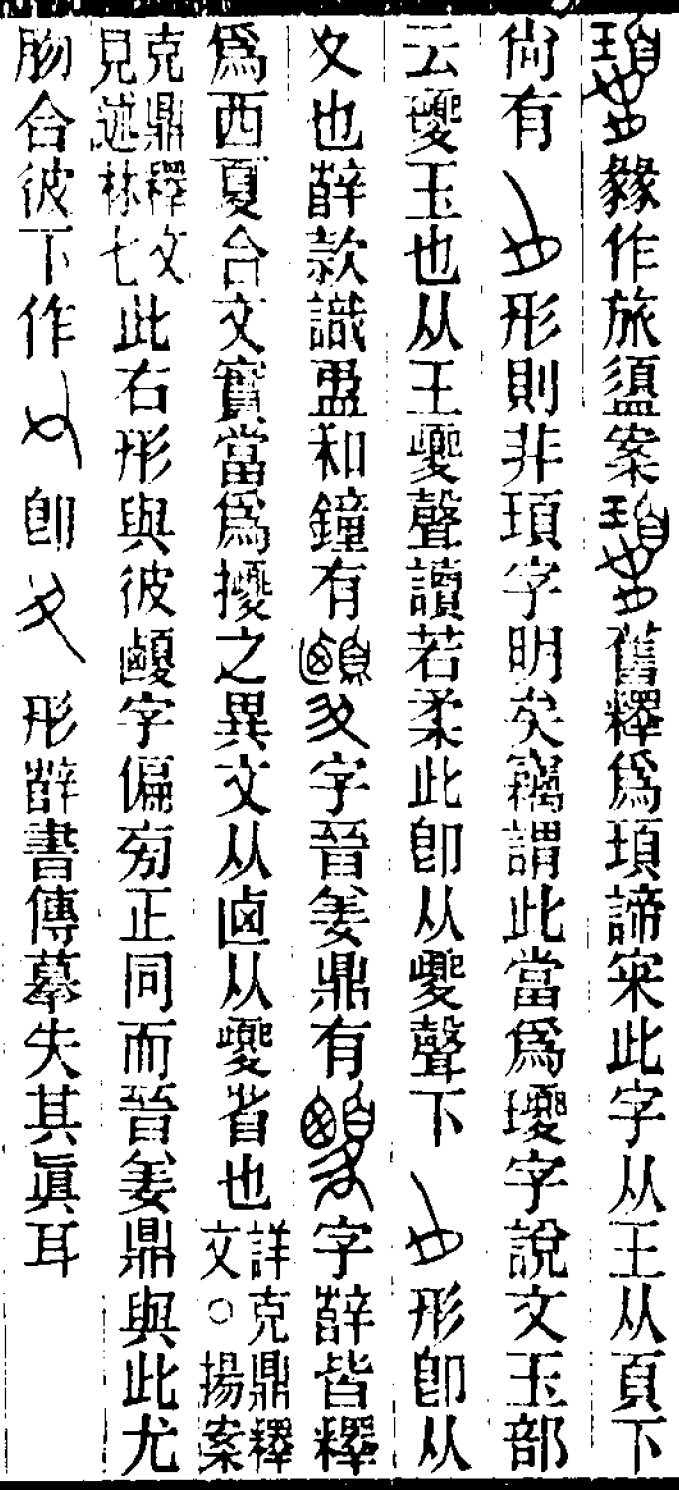 鬹作旅盨案舊釋爲頊諦宷此字从王从頁下
尙有形則非頊字明矣竊謂此當爲瓇字說文玉部
云瓇玉也从王夒聲讀若柔此卽从夒聲下形卽从
夊也薛款識盄和鐘有字晉姜鼎有字薛皆釋
爲西夏合文實當爲擾之異文从卥从夒省也詳克鼎釋文○揚案
克鼎釋文見述林七此右形與彼字偏旁正同而晉姜鼎與此尤
脗合彼下作卽形薛書傳摹失其眞耳